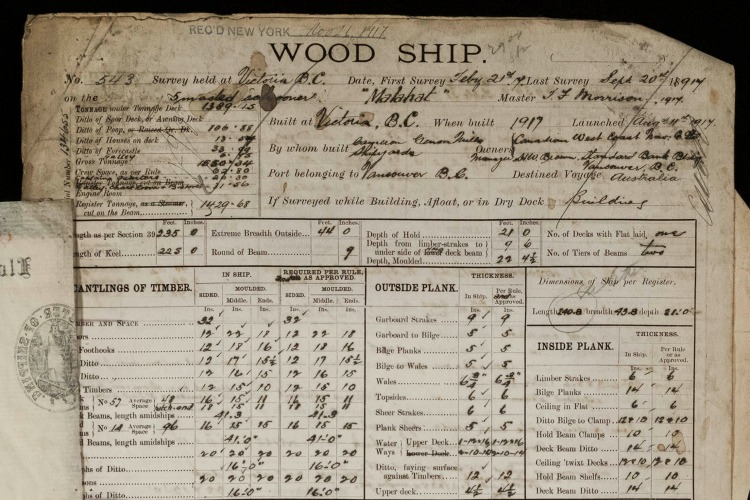 REC'D NEW YORK Nov 6, 1917
WOOD SHIP.
No. 543 Survey held at Victoria B.C. Date, First Survey Feby 21st 17 Last Survey Sept 20th 1917
on the 5 masted schooner. "Malahat" Master 1917.
TONNAGE under Tonnage Deck 1389.15
Ditto of Spar Deck, or Awning Deck
Ditto of Poop, or Raised Qr. Dk. 106.88
Ditto of Houses on deck
Ditto of Forecastle
Gross Tonnage
Crew Space, as per Rule
Engine Room
Register Tonnage, as a Steamer, 1429.68
cut on the Beam
Built at Victoria, B.C. When built 1917 Launched Aug 1917
By whom built Cameron Genoa Mills Shipyards Owners Canadian West Coast Nav. Co.
Manager Standard Bank Bldg Vancouver, B.C.
Port belonging to Vancouver B.C. Destined Voyage Australia
If Surveyed while Building, Afloat, or in Dry Dock Building
Feet. Inches.
Length as per Section 39 235 0
Length of Keel 225 0
Extreme Breadth Outside 44 0
Round of Beam 9
Depth of Hold 21 0
Depth from limber-strakes to under side of deck beam 9 6
Depth, Moulded 22 4½
No. of Decks with Flat laid, one
No. of Tiers of Beams two
SCANTLINGS OF TIMBER.
IN SHIP.
REQUIRED PER RULE, OR AS APPROVED.
SIDED. MOULDED. SIDED. MOULDED.
Middle. Ends. Middle. Ends.
Ins. Ins. Ins. Ins. Ins. Ins.
TIMBER AND SPACE 32 32
12 22 18 12 22 18
Foothooks 12 18 16 12 18 16
Ditto 12 17 15½ 12 17 15½
Ditto 12 16 15 12 16 15
Timbers 12 15 10 12 15 10
No 57 Average Space 48
No 14 Average Space 96 16 15 15
Beams, length amidships 41.3 41.3
Beams, length amidships 41'.0" 41'.0"
20 20 20 20 20 20
lengths of Ditto 16'.0" 16'.0"
20 20 20 20 20 20
lengths of Ditto 16'.0" 16'.0"
OUTSIDE PLANK.
THICKNESS.
In Ship. Per Rule, or as Approved.
Ins. Ins.
Garboard Strakes 9 9
Garboard to Bilge 5 5
Bilge Planks 5 5
Bilge to Wales 5 5
Wales
Topsides 6 6
Sheer Strakes 6 6
Plank Sheers 5 5
Water Ways Upper Deck
Lower Deck
Ditto, faying surface against Timbers 12 12
Upper deck 4½ 4½
Dimensions of Ship per Register.
Length 240.8 breadth 43.8 depth 21.0
INSIDE PLANK.
THICKNESS.
In Ship. Per Rule or as Approved.
Ins. Ins.
Limber Strakes 6 6
Bilge Planks 14 14
Ceiling in Flat 6 6
Ditto Bilge to Clamp 12&10 12&10
Hold Beam Clamps 10 10
Deck Beam Ditto 14 14
Ceiling 'twixt Decks 12&10 12&10
Hold Beam Shelfs 10 10
Deck Beam Ditto 14 14